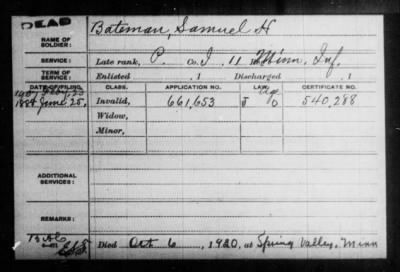 DEAD
NAME OF SOLDIER: Bateman, Samuel H
SERVICE: Late rank, P. Co. I, 11 Minn. Inf.
TERM OF SERVICE: Enlisted , 1 Discharged , 1
DATE OF FILING. CLASS. APPLICATION NO. LAW. CERTIFICATE NO.
1907 Feby, 25
1888 June 25, Invalid, 661,653 J O 540,288
Widow,
Minor,
ADDITIONAL SERVICES:
REMARKS:
Died Oct. 6, 1920, at Spring Valley, Minn